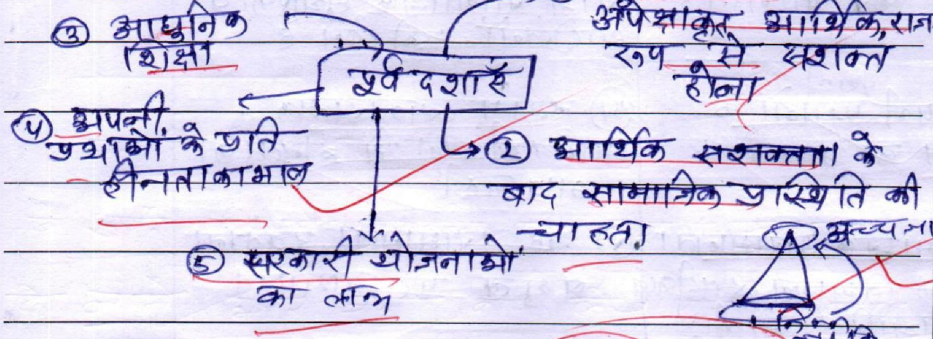 ③ आधुनिक
शिक्षा
पूर्व दशाएँ
अपेक्षाकृत आर्थिक, राज
रूप से सशक्त
होना
④ अपनी
प्रथाओं के प्रति
हीनता का भाव
② आर्थिक सशक्तता के
बाद सामाजिक प्रास्थिति की
चाहत
⑤ सरकारी योजनाओं
का लाभ